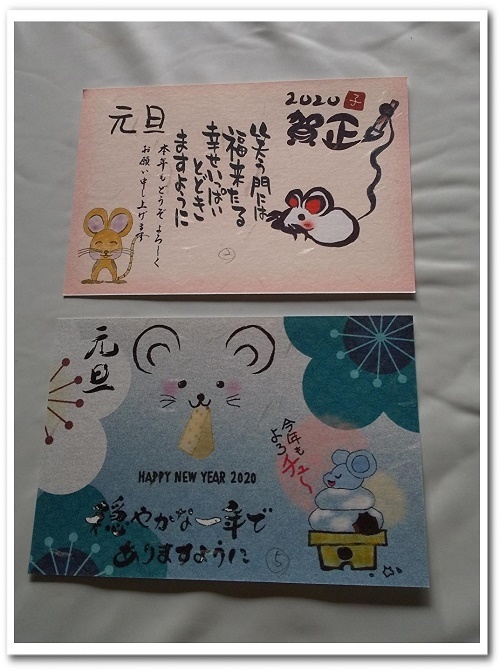 2020 子
賀正
笑う門には
福来たる
幸せいっぱい
とどき
ますように
元旦
本年もどうぞよろしく
お願い申し上げます
2
元旦
HAPPY NEW YEAR 2020
今年も
よろ
チュー
穏やかな一年で
ありますように
5